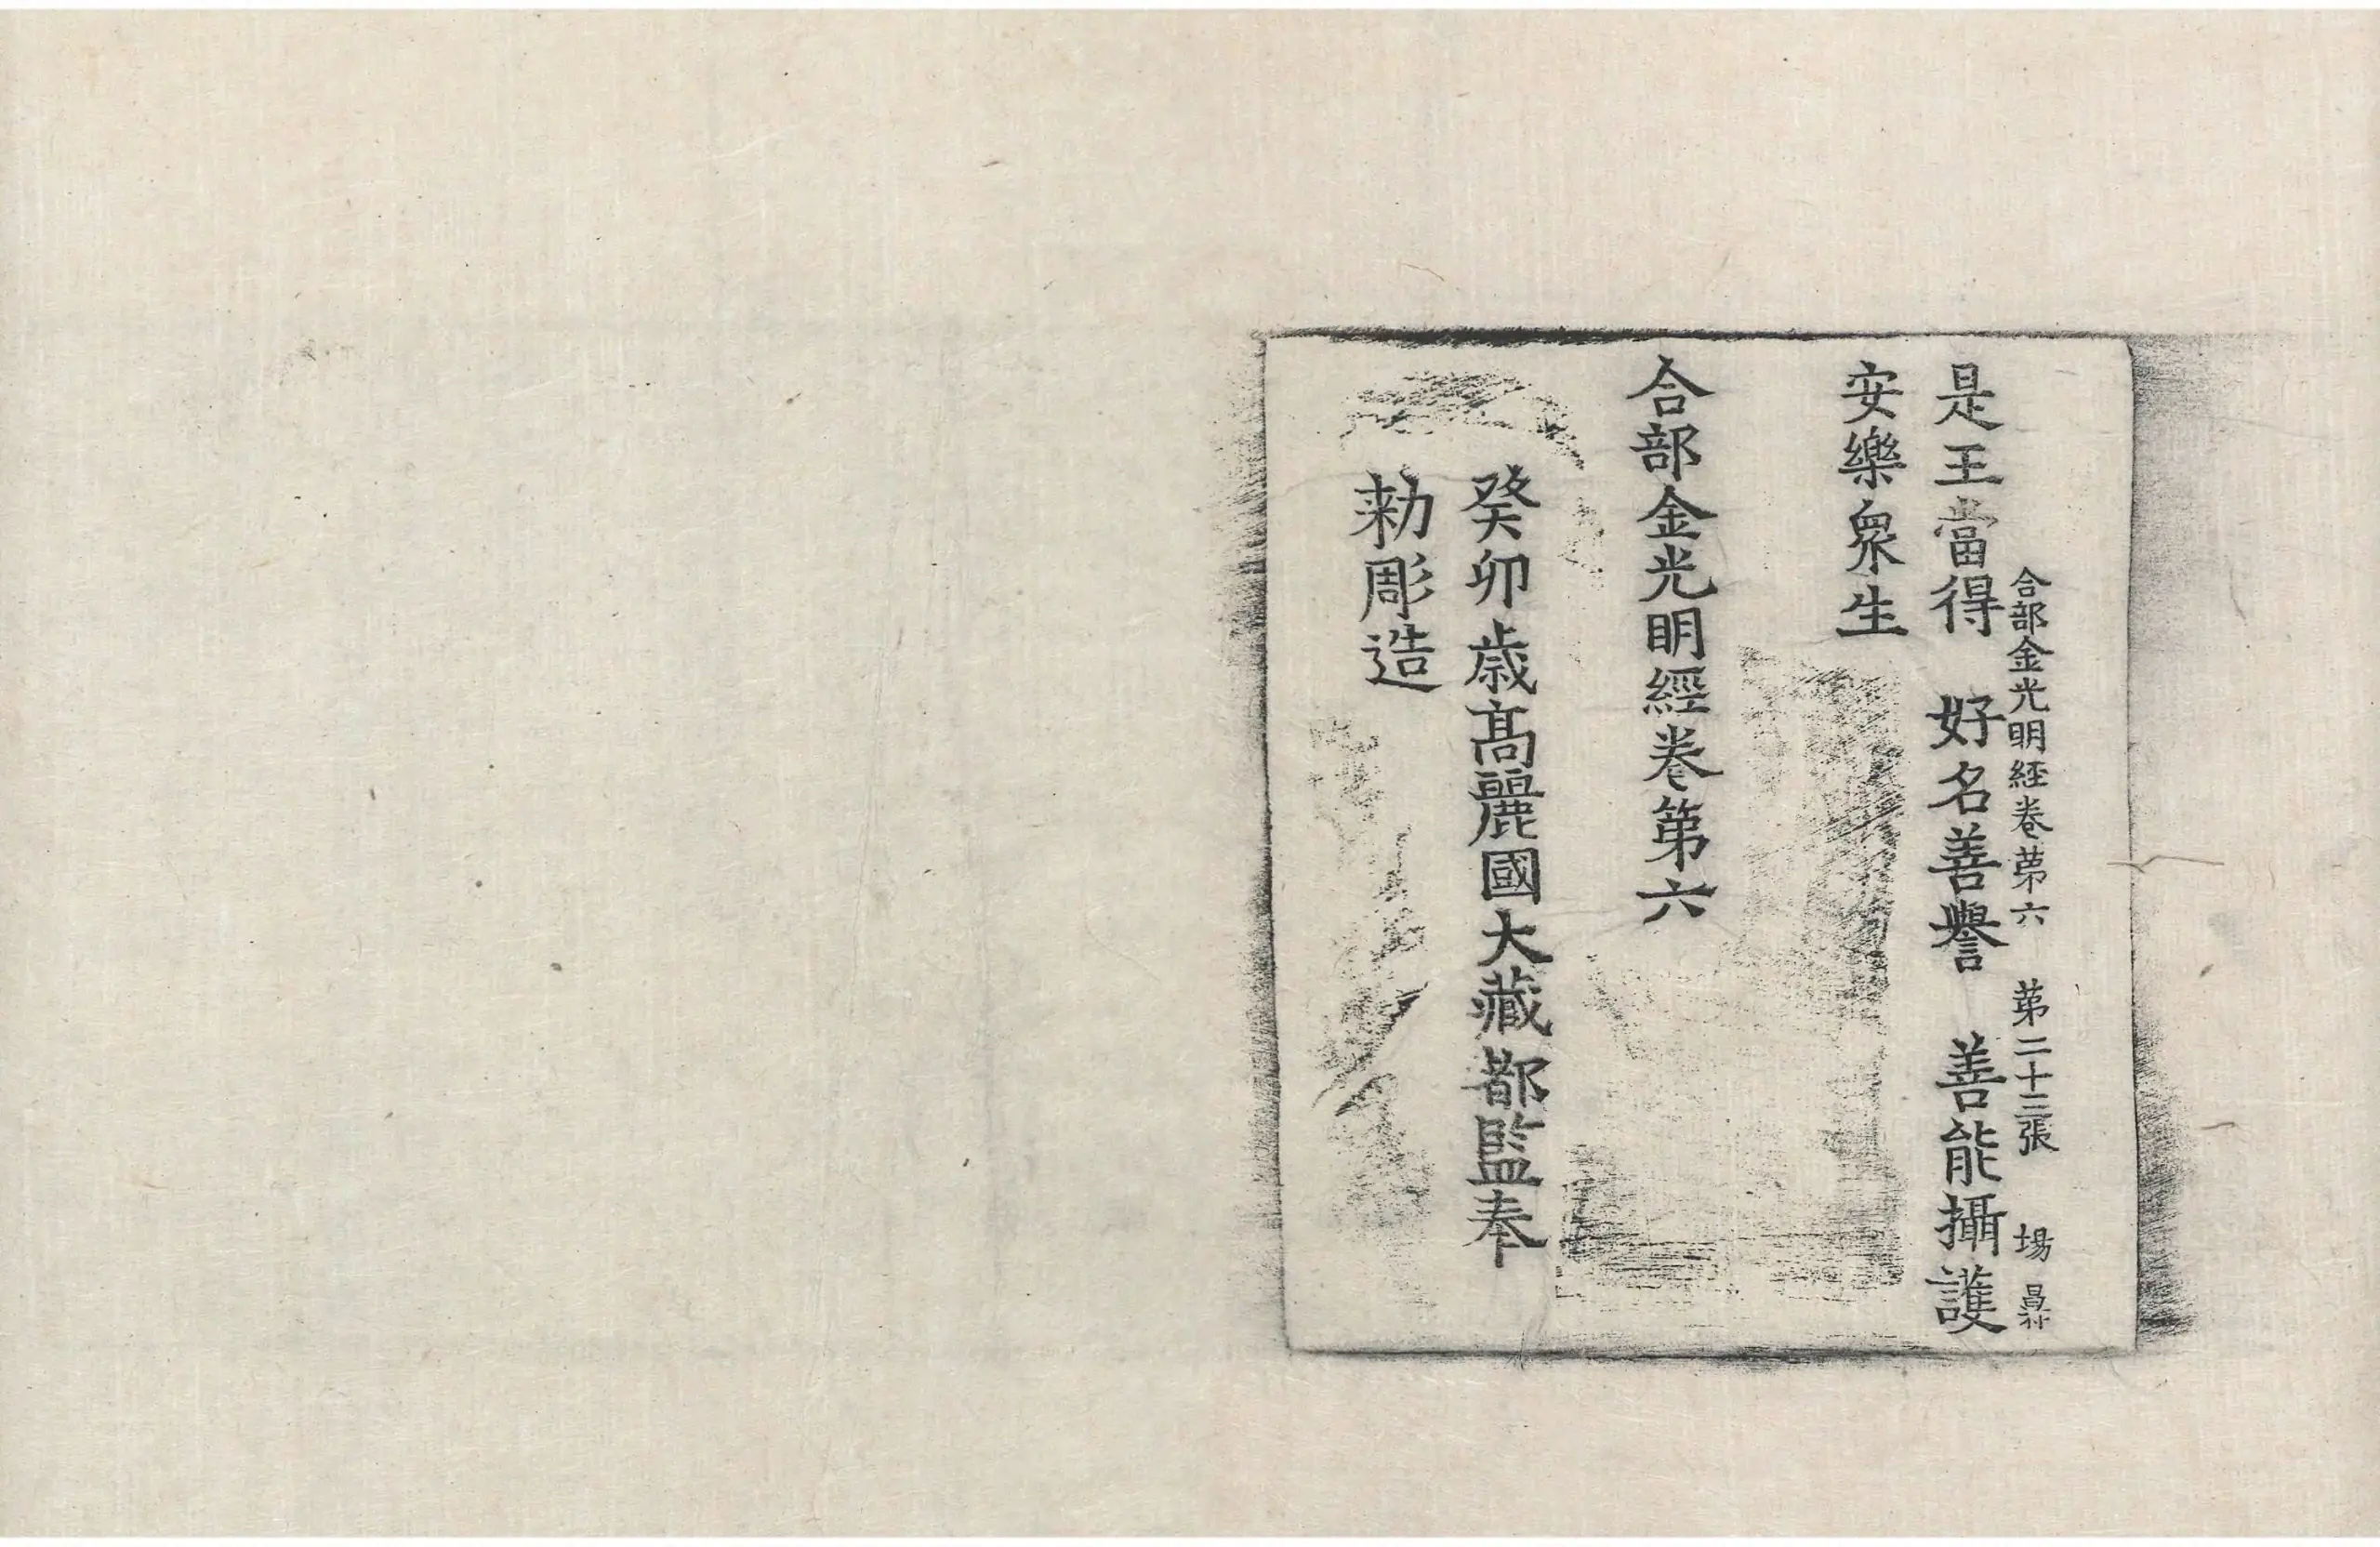 合部金光明経卷苐六 苐二十三張 場
是王當得 好名善譽 善能攝護
安樂衆生
合部金光明經卷第六
癸卯歳髙麗國大藏都監奉
勅彫造